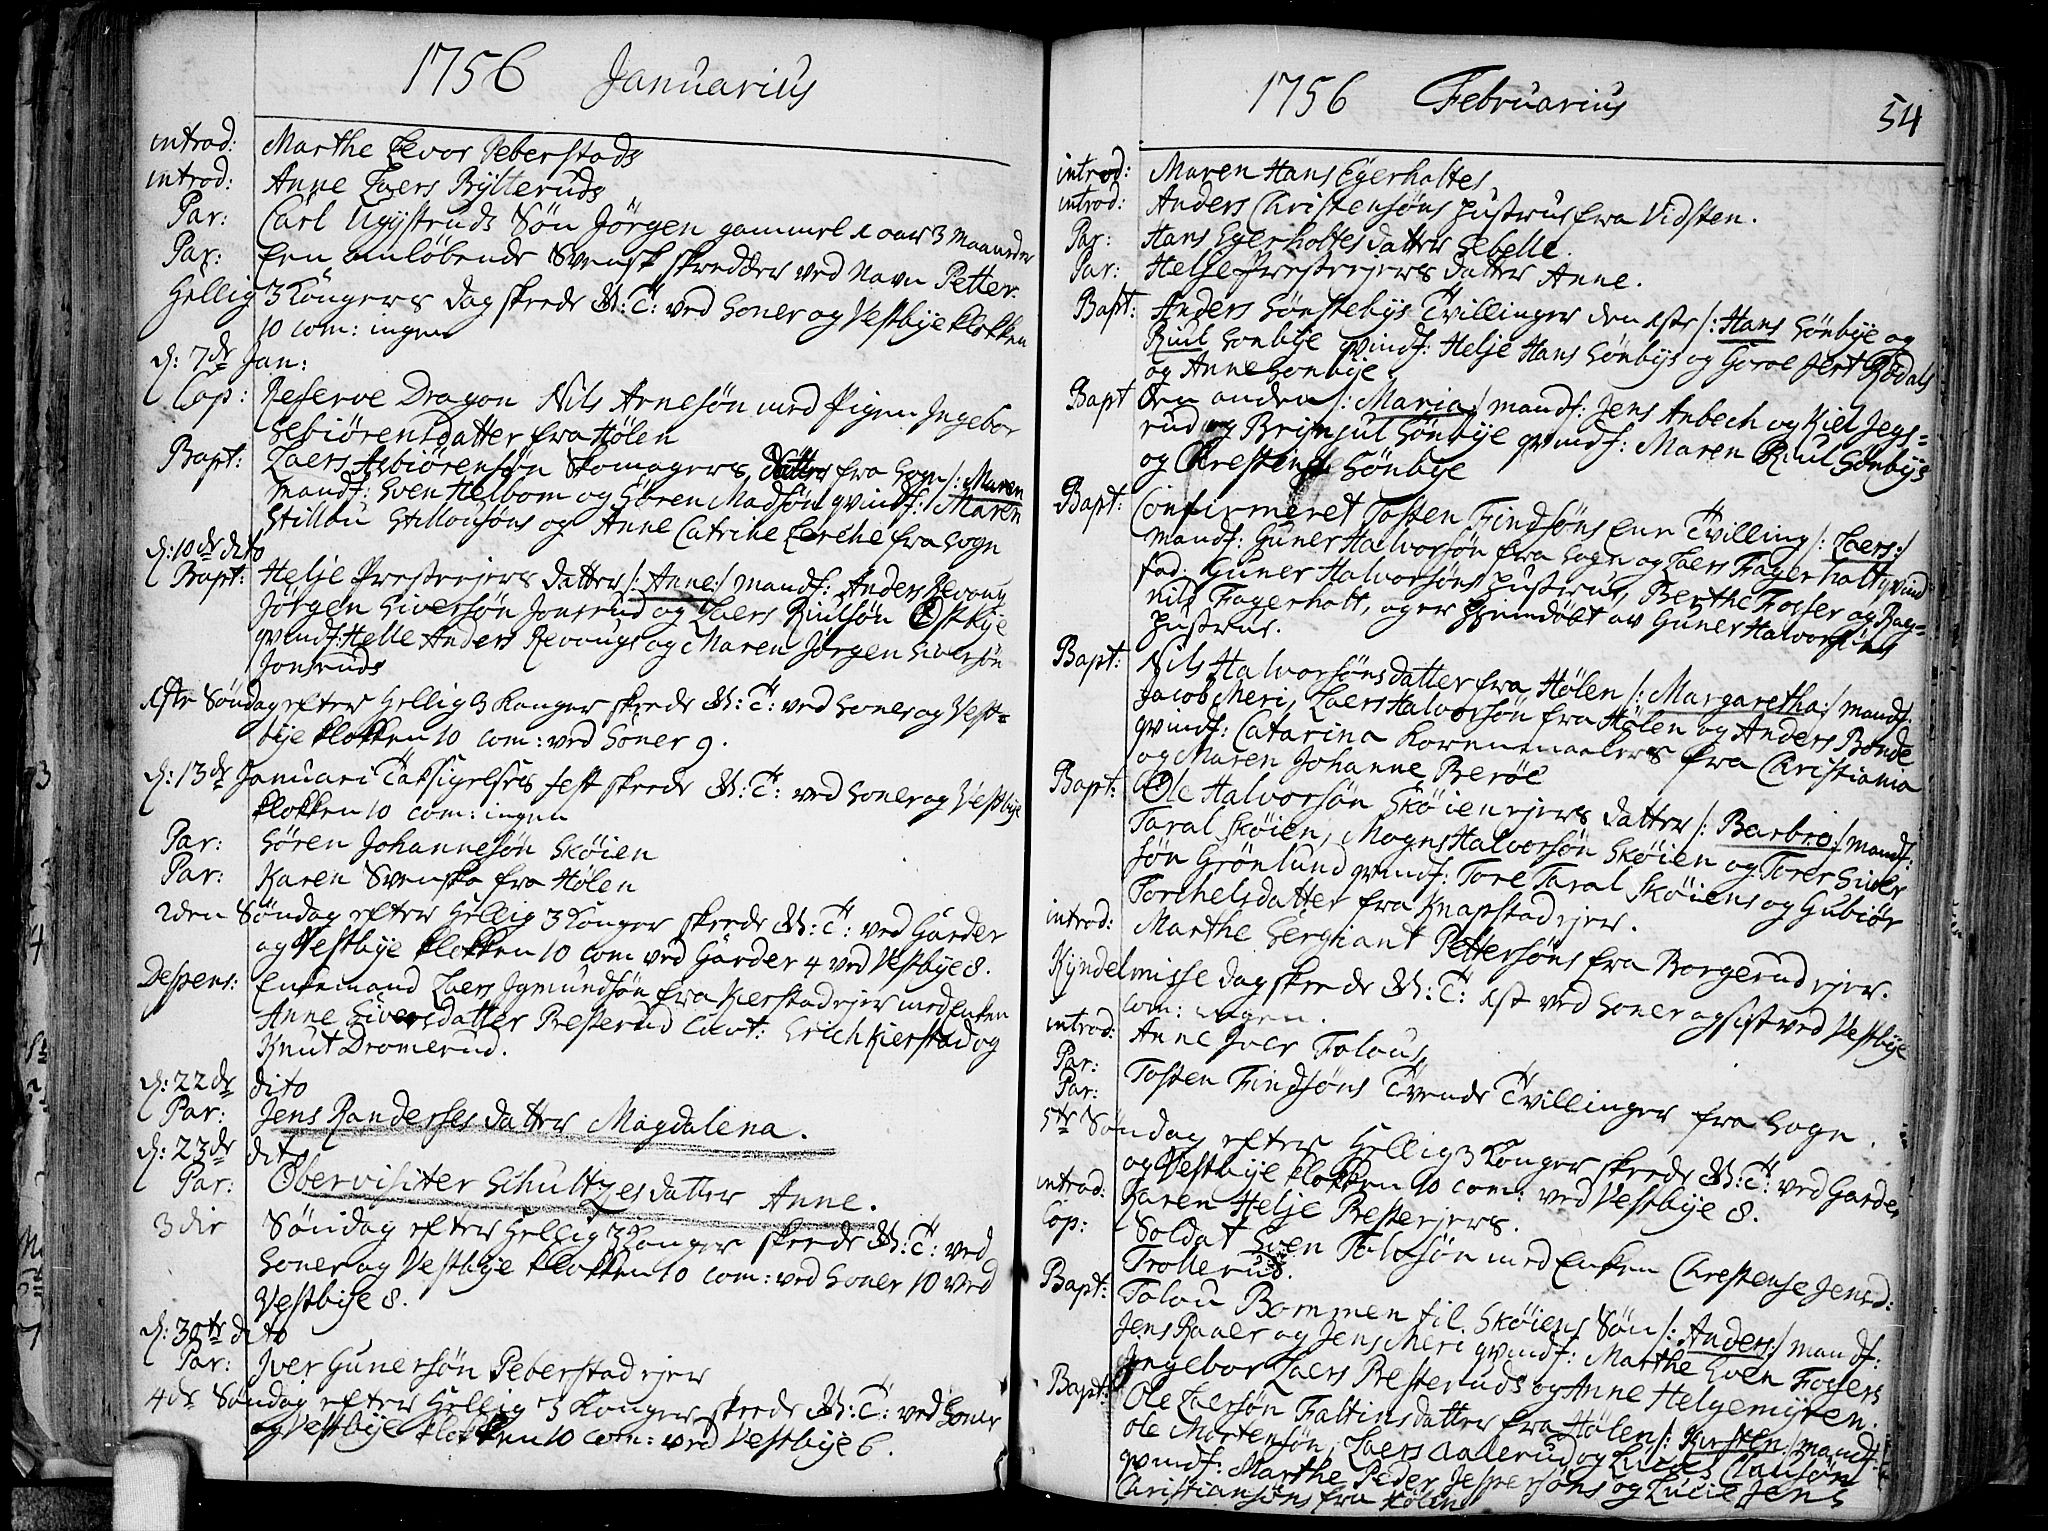 1756 Januarius
introd: Marthe Levor Peberstads
introd: Anne Laers Bÿtteruds
Par: Carl Søn Jörgen gammel 1 aar 3 Maaneder
Par: Een omløbende Svensk skredder ved Navn Petter.
Hellig 3 Kongers dag skeede G: T: ved Soner og Vestbÿe klokken
10 com: ingen
d: 7de Jan:
Cop: Reserve Dragon Nils Arnesøn med Pigen Ingebor
Sebiörensdatter fra Hølen
Bapt: Laers Asbiörensøn Skomagers datter fra Sogn /: Maren
mandf: Sven Helbom og Sören Madsøn qvindf: Maren
Stillou Stillousøns og Anne Catrine Lerche fra Sogn
d: 10de dito
Bapt: Helje Presteejers datter /: Anne :/ mandf: Anders Revoug
Jörgen Siversøn Jonsrud og Laers Riulsøn Østbÿe
qvindf: Helle Anders Revougs og Maren Jörgen Siversøn
Jonsruds
1ste Søndag efter Hellig 3 Konger skeede G: T: ved Soner og Vest=
bÿe klokken 10 com: ved Soner 9.
d: 13de Januari Taksigelses fest skeede G: T: ved Soner og Vestbÿe
klokken 10 com: ingen
Par: Sören Johannesøn Skøien
Par: Karen Svenska fra Hølen
2den Søndag efter Hellig 3 Konger skeede G: T: ved Garder
og Vestbÿe klokken 10 com ved Garder 4 ved Vestbÿe 8.
Despens: Enkemand Laers Igmundsøn fra Kierstadejer med Enken
Anne Siversdatter Presterud Caut: Erich Kierstad og
Knut Dromerud.
d: 22de dito
Par: Jens Randerses datter Magdalena.
d: 23de dito
Par: Obervisiter Schultzes datter Anne.
3die Søndag efter Hellig 3 Konger skeede G: T: ved
Soner og Vestbÿe klokken 10 com: ved Soner 10 ved
Vestbÿe 8.
d: 30te dito
Par: Iver Gunersøn Peberstadejer
4de Søndag efter Hellig 3 Konger skeede G: T: ved Soner
og Vestbÿe klokken 10 com: ved Vestbÿe 6.
1756 Februarius 54
introd: Maren Hans Egerholtes
introd: Anders Christensøns Hustrue fra Vidsten.
Par: Hans Egerholtes datter Sebelle.
Par: Helje Presteejers datter Anne.
Bapt: Anders Sønstebÿs Tvillinger den 1ste /: Hans Sönbÿe og
Riul Sonbÿe qvindf: Helje Hans Sönbÿs og Goroe Jert Rødals
og Anne Sonbÿe
Bapt den anden /: Maria :/ mandf: Jens Anbech og Kiel Jegs=
rud og Brÿnjul Sönbÿe qvindf: Maren Riul Sonbÿs
og Chrestense Sönbÿe
Bapt: Confirmeret Tosten Findsøns Een Tvilling /: Laers :/
mandf: Guner Halvorsøn fra Sogn og Laers Fagerholt qvind
fad: Guner Halvorsøns Hustrue, Berthe Fosser og Rag=
nild Fagerholt, og er Hjemdøbt av Guner Halvorsøns
Hustrue.
Bapt: Nils Halvorsøns datter fra Hølen /: Margaretha :/ mandf:
Jacob Meri, Laers Halvorsøn fra Hølen og Anders Bonde
qvindf: Catarina Korenmaalers fra Christiania
og Maren Johanne Beröe
Bapt: Ole Halvorsøn Skøienejers datter /: Barbro :/ mandf:
Taral Skøien, Mogns Halvorsøn Skøien og Torer Siver
søn Grönlund qvindf: Tore Taral Skøiens og Gubiör
Torchelsdatter fra Knapstadejer.
introd: Marthe Sergiant Pettersøns fra Borgerudejer.
Kÿndelmisse dag skeede G: T: 1st ved Soner og sist ved Vestbÿe
com: ingen.
introd: Anne Iver Tolous
Par:
Par: Tosten Findsøns Tvende Tvillinger fra Sogn.
5te Søndag efter Hellig 3 Konger skeede G: T: ved Garder
og Vestbÿe klokken 10 com: ved Vestbÿe 8.
introd: Karen Helje Presteejers.
Cop: Soldat Sven Tolvsøn med Enken Chrestense Jensd:
Trollerud.
Bapt: Tolou Bommen til Skøiens Søn /: Anders :/ mandf:
Jens Raaer og Jens Meri qvindf: Marthe Sven Fossers
Ingebor Laers Presteruds og Anne Helgemÿren.
Bapt: Ole Laersøn Faltins datter fra Hølen /: Kirsten :/ mandf:
Ole Mortensøn, Laers Aalerud og Lucas Clausøn
qvindf: Marthe Peder Jespersøns og Lucie Jens
Christiansøns fra Hølen